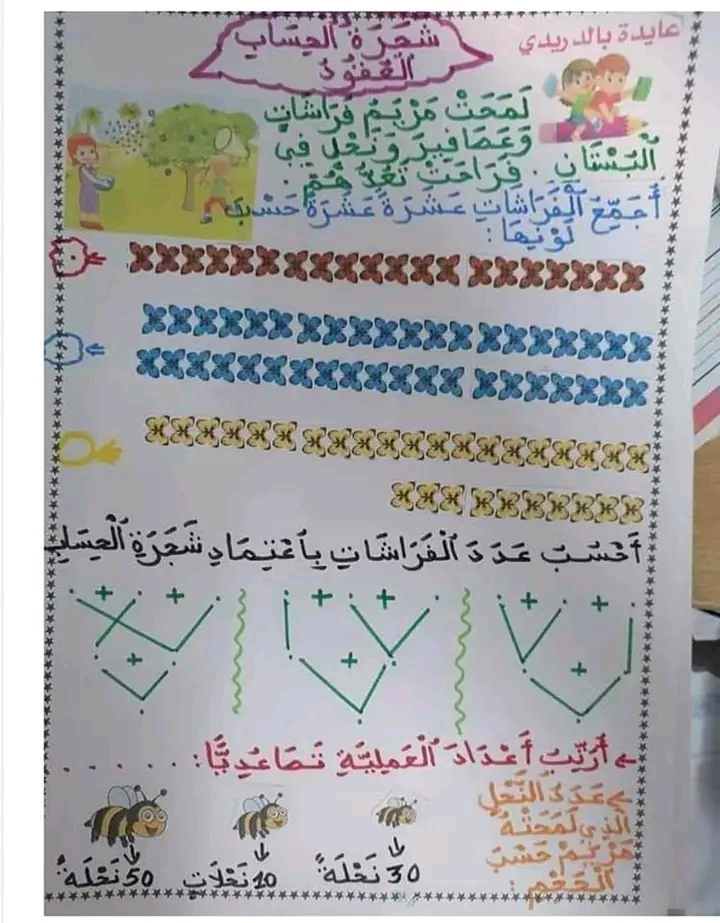 عايدة بالدريدي
شَجَرَةُ الحِسَابِ
العَقُودُ
لَمَحَتْ مَرْيَمُ فَرَاشَاتٍ
وَعَصَافِيرَ وَنَحْل فِي
الْبُسْتَانِ. فَرَاحَتْ تَعُدُّ هُمْ.
أُجَمِّعُ الْفَرَاشَاتِ عَشَرَةً عَشَرَةً حَسْبَ
لَوْنِهَا:
أَحْسُبُ عَدَدَ الْفَرَاشَاتِ بِاعْتِمَادِ شَجَرَةِ الْحِسَابِ
. + . + .
. + . + .
. + . + .
. + .
. + .
. + .
← أُرَتِّبُ أَعْدَادَ الْعَمَلِيَّةِ تَصَاعُدِيًّا: . . . . . .
عَدَدُ النَّحْلِ
الَّذِي لَمَحَتْهُ
مَرْيَمُ حَسْبَ
الْحَجْمِ:
30 نَحْلَةً
10 نَحْلَاتٍ
50 نَحْلَةً